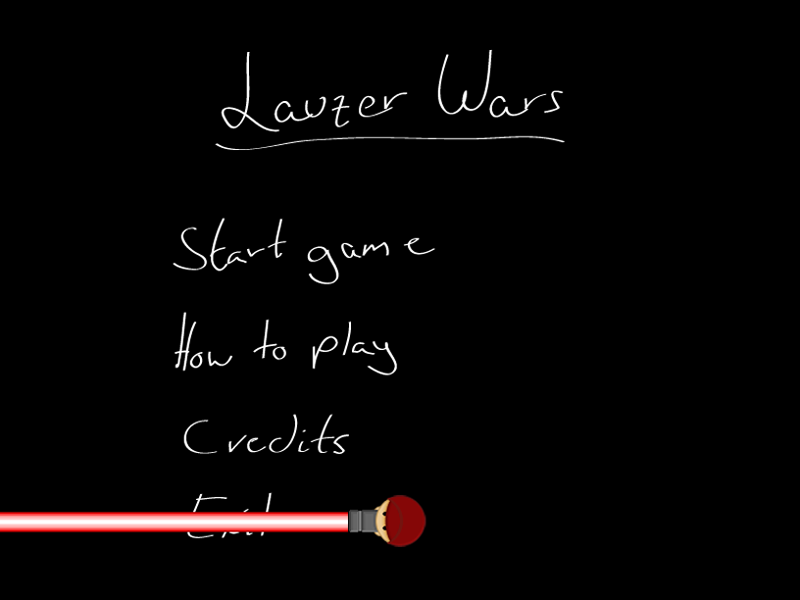 Lauzer Wars
Start game
How to play
Credits
Exit